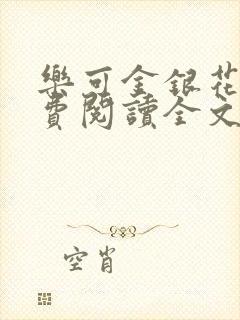 樂可金銀花
費閱讀全文
空肖